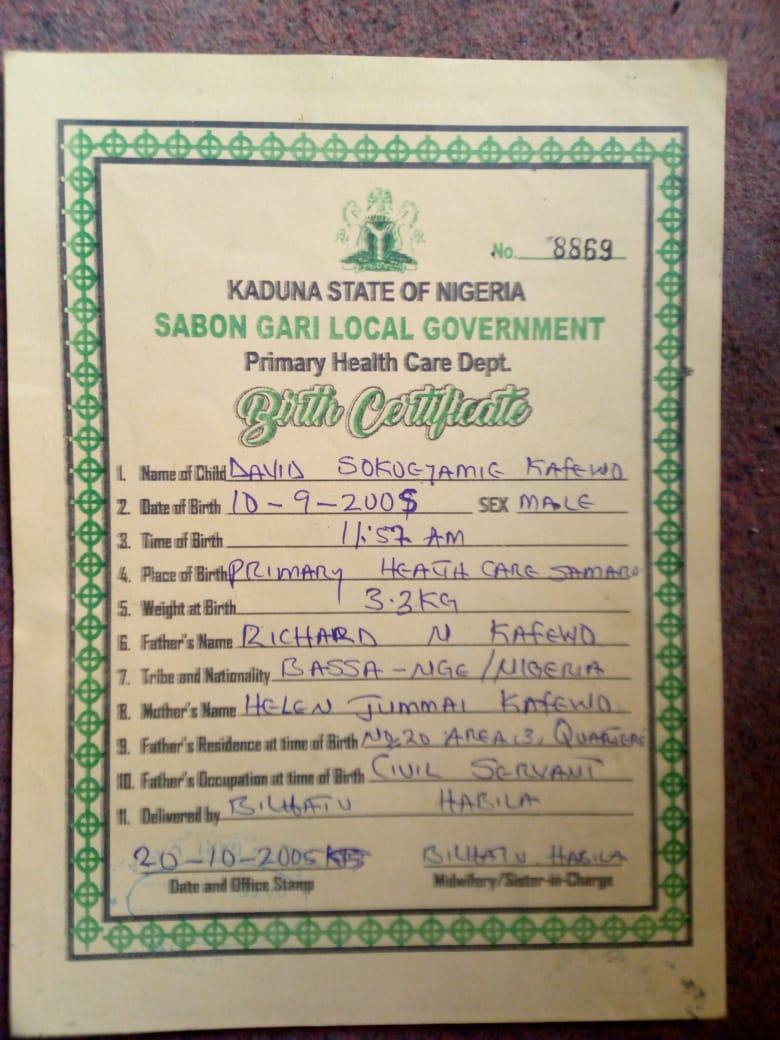 No. 8869
KADUNA STATE OF NIGERIA
SABON GARI LOCAL GOVERNMENT
Primary Health Care Dept.
Birth Certificate
1. Name of Child DAVID SOKUEJAMIE KAFEWO
2. Date of Birth 10-9-2005 SEX MALE
3. Time of Birth 11:57 AM
4. Place of Birth PRIMARY HEALTH CARE SAMARU
5. Weight at Birth 3.3KG
6. Father's Name RICHARD N KAFEWO
7. Tribe and Nationality BASSA-NGE/NIGERIA
8. Mother's Name HELEN JUMMAI KAFEWO
9. Father's Residence at time of Birth NO.20 AREA 3, QUARTERS
10. Father's Occupation at time of Birth CIVIL SERVANT
11. Delivered by BILHATU HABILA
20-10-2005 BILHATU HABILA
Date and Office Stamp Midwifery/Sister-in-Charge